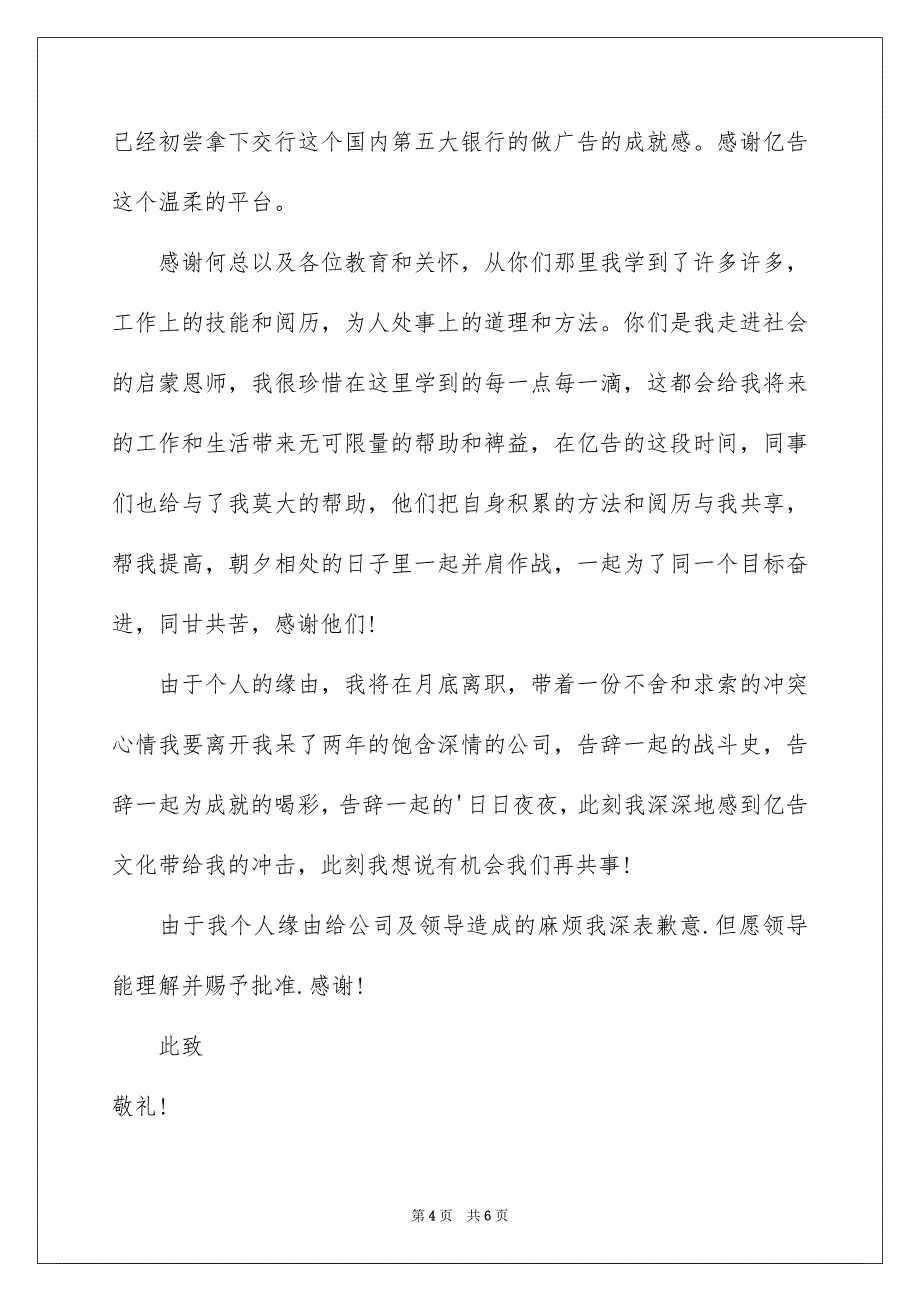 已经初尝拿下交行这个国内第五大银行的做广告的成就感。感谢亿告
这个温柔的平台。
感谢何总以及各位教育和关怀，从你们那里我学到了许多许多，
工作上的技能和阅历，为人处事上的道理和方法。你们是我走进社会
的启蒙恩师，我很珍惜在这里学到的每一点每一滴，这都会给我将来
的工作和生活带来无可限量的帮助和裨益，在亿告的这段时间，同事
们也给与了我莫大的帮助，他们把自身积累的方法和阅历与我共享，
帮我提高，朝夕相处的日子里一起并肩作战，一起为了同一个目标奋
进，同甘共苦，感谢他们!
由于个人的缘由，我将在月底离职，带着一份不舍和求索的冲突
心情我要离开我呆了两年的饱含深情的公司，告辞一起的战斗史，告
辞一起为成就的喝彩，告辞一起的'日日夜夜，此刻我深深地感到亿告
文化带给我的冲击，此刻我想说有机会我们再共事!
由于我个人缘由给公司及领导造成的麻烦我深表歉意.但愿领导
能理解并赐予批准.感谢!
此致
敬礼!
第 4 页 共 6 页